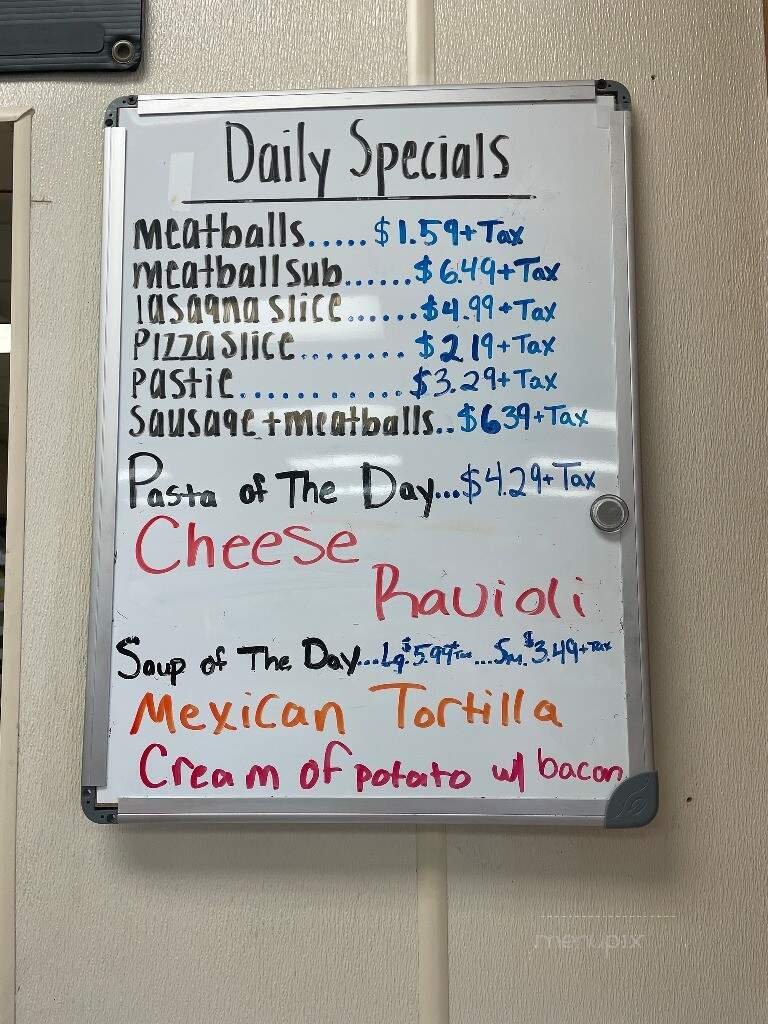 Daily Specials
meatballs.....$1.59+Tax
meatball sub......$6.49+Tax
lasagna slice......$4.99+Tax
Pizza slice........$2.19+Tax
Pastie...........$3.29+Tax
Sausage+meatballs..$6.39+Tax
Pasta of The Day...$4.29+Tax
Cheese
Ravioli
Soup of The Day...Lg$5.99+Tax...Sm.$3.49+Tax
Mexican Tortilla
Cream of potato w/ bacon
menupix